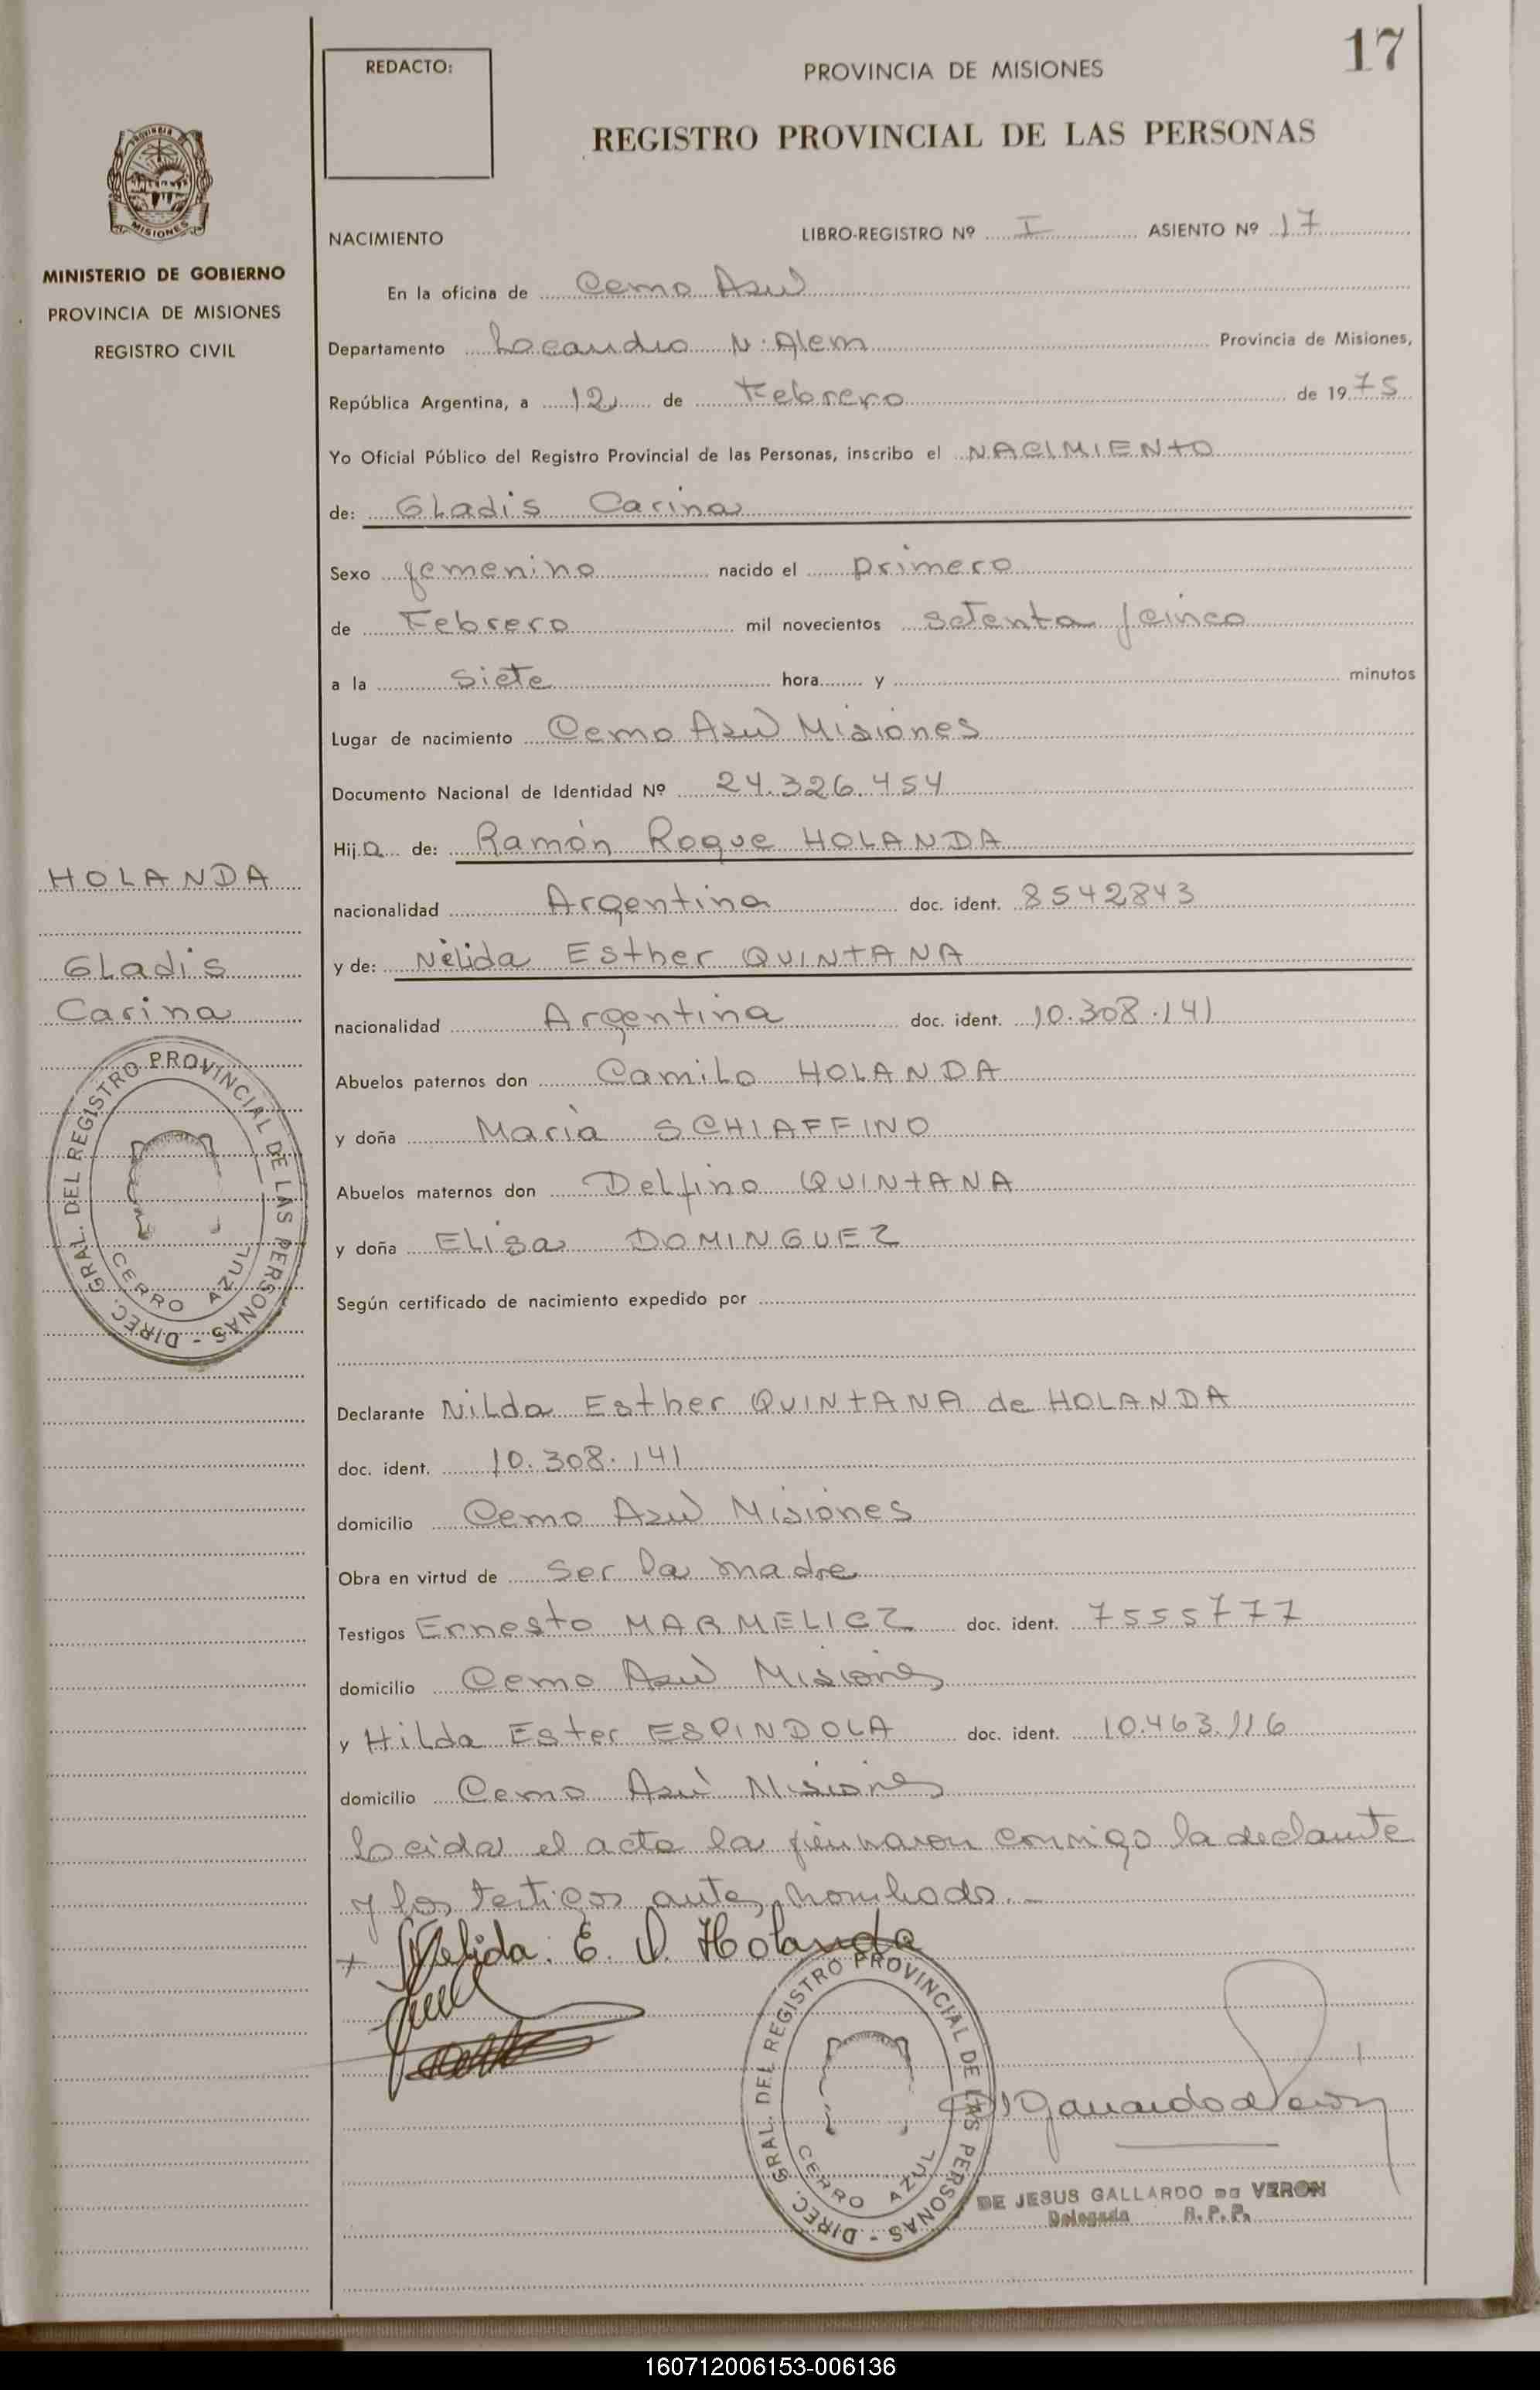 17
REDACTO:
PROVINCIA DE MISIONES
REGISTRO PROVINCIAL DE LAS PERSONAS
PROVINCIA DE
MISIONES
MINISTERIO DE GOBIERNO
PROVINCIA DE MISIONES
REGISTRO CIVIL
NACIMIENTO LIBRO-REGISTRO Nº I ASIENTO Nº 17
En la oficina de Cerro Azul
Departamento Leandro N. Alem Provincia de Misiones,
República Argentina, a 12 de Febrero de 1975
Yo Oficial Público del Registro Provincial de las Personas, inscribo el NACIMIENTO
de: Gladis Carina
Sexo femenino nacido el primero
de Febrero mil novecientos setenta y cinco
a la siete hora y minutos
Lugar de nacimiento Cerro Azul Misiones
Documento Nacional de Identidad Nº 24.326.454
Hija de: Ramón Roque HOLANDA
nacionalidad Argentina doc. ident. 8542843
y de: Nélida Esther QUINTANA
nacionalidad Argentina doc. ident. 10.308.141
Abuelos paternos don Camilo HOLANDA
y doña María SCHIAFFINO
Abuelos maternos don Delfino QUINTANA
y doña Elisa DOMINGUEZ
Según certificado de nacimiento expedido por
Declarante Nilda Esther QUINTANA de HOLANDA
doc. ident. 10.308.141
domicilio Cerro Azul Misiones
Obra en virtud de ser la madre
Testigos Ernesto MARMELICZ doc. ident. 7555777
domicilio Cerro Azul Misiones
y Hilda Ester ESPINDOLA doc. ident. 10.463.116
domicilio Cerro Azul Misiones
Leida el acta la firmaron conmigo la declante
y los testigos antes nombrado.-
HOLANDA
Gladis
Carina
DIREC. GRAL. DEL REGISTRO PROVINCIAL DE LAS PERSONAS -
CERRO AZUL
Nelida. E. Q. Holanda
DIREC. GRAL. DEL REGISTRO PROVINCIAL DE LAS PERSONAS -
CERRO AZUL
DE JESUS GALLARDO DE VERON
Delegada R.P.P.
160712006153-006136